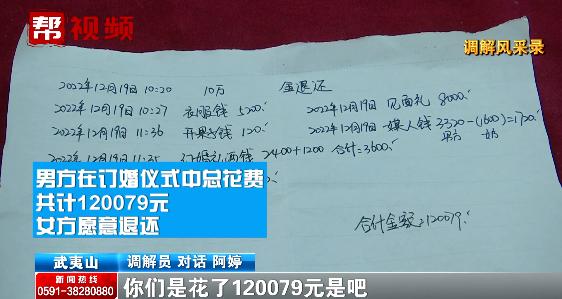 帮视频
调解风采录
2022年12月19日 10:20 10万 全退还
2022年12月19日 10:27 衣服钱 5200. 2022年12月19日 见面礼 8000.
2022年12月19日 11:36 开果钱 120. 2022年12月19日 媒人钱 3320-(1600)=1720.
男方
2022年12月19日 11:35 订婚礼 两钱 2400+1200 合计=3600.
男方在订婚仪式中总花费
共计120079元
女方愿意退还
合计金额:120079.
武夷山 调解员 对话 阿婷
新闻热线
0591-38280880
你们是花了120079元是吧